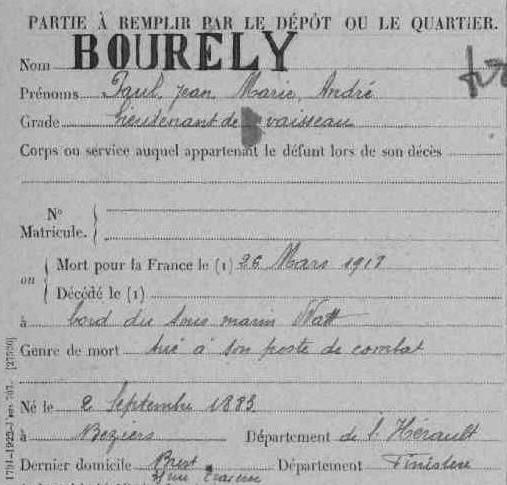 PARTIE À REMPLIR PAR LE DÉPÔT OU LE QUARTIER.
Nom BOURELY
Prénoms Paul, Jean Marie, André
Grade Lieutenant de vaisseau
Corps ou service auquel appartenait le défunt lors de son décès
N°
Matricule.
ou
Mort pour la France le (1) 26 Mars 1917
Décédé le (1)
à bord du sous marin Watt
Genre de mort tué à son poste de combat
Né le 2 Septembre 1883
à Beziers Département de l'Hérault
Dernier domicile Brest Département Finistère